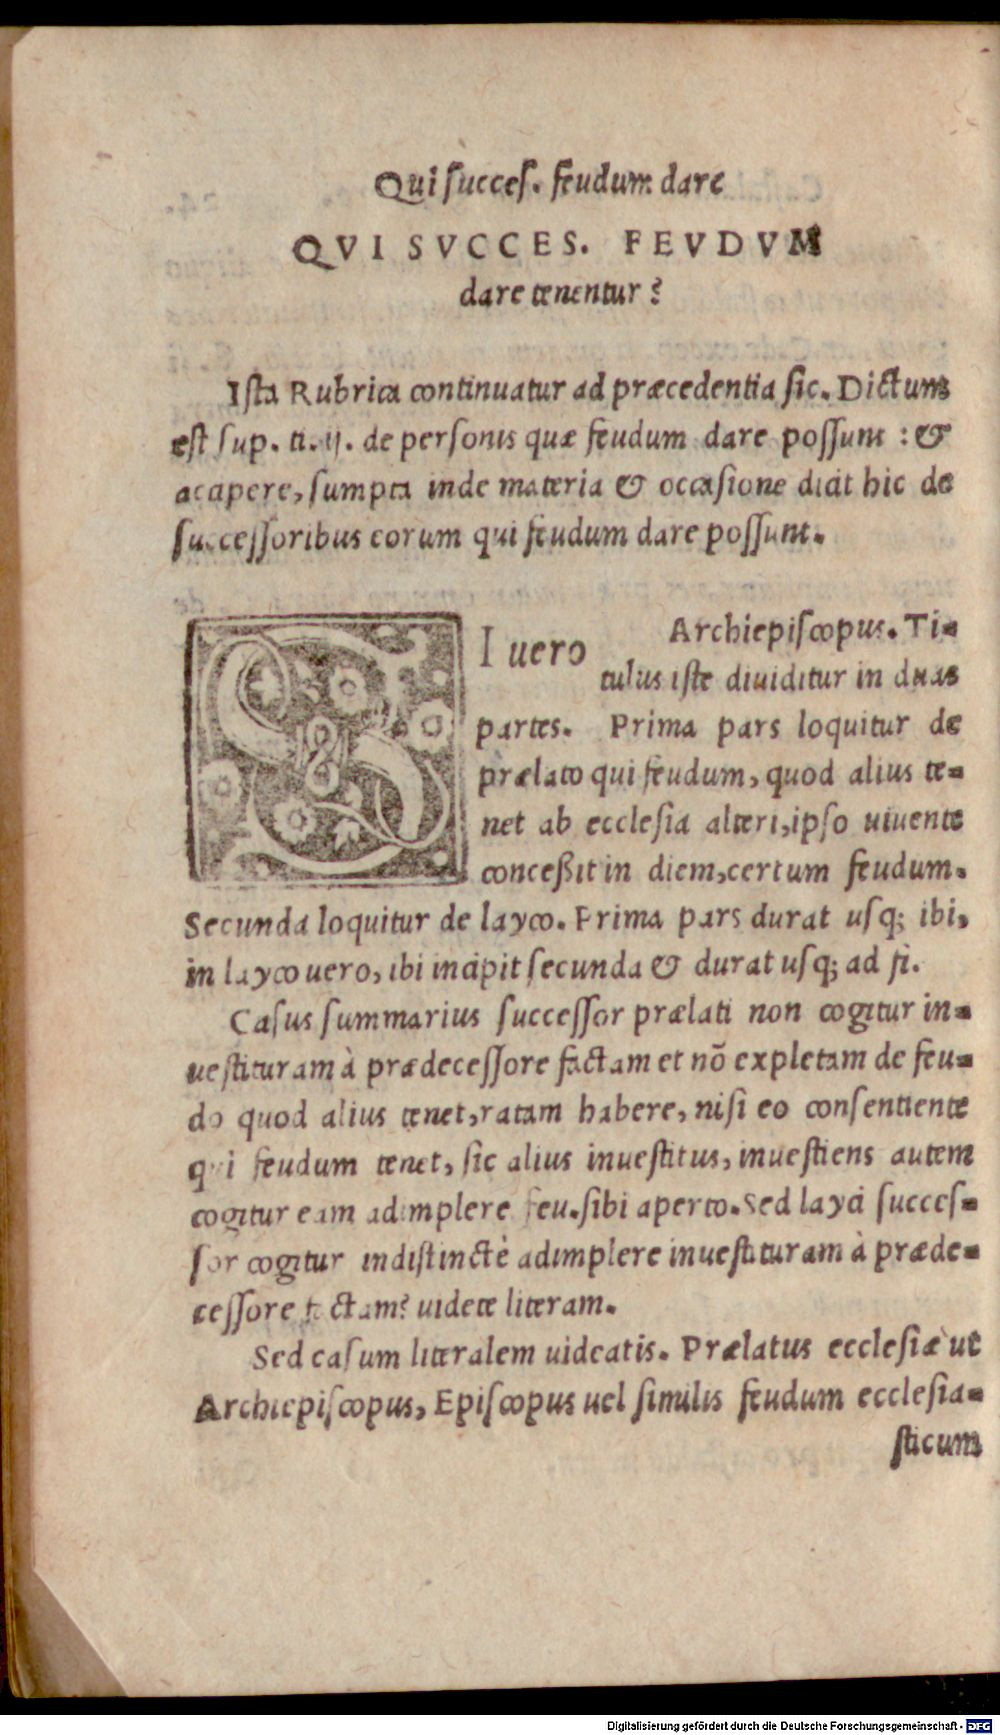 Qui succes. feudum dare
QVI SVCCES. FEVDVM
dare tenentur?
Ista Rubrica continuatur ad præcedentia sic. Dictum
est sup. ti. ij. de personis quæ feudum dare possunt : &
accipere, sumpta inde materia & occasione dicit hic de
successoribus eorum qui feudum dare possunt.
SI uero Archiepiscopus. Ti-
tulus iste diuiditur in duas
partes. Prima pars loquitur de
prælato qui feudum, quod alius te-
net ab ecclesia alteri, ipso uiuente
conceßit in diem, certum feudum.
Secunda loquitur de layco. Prima pars durat usq; ibi,
in layco uero, ibi incipit secunda & durat usq; ad fi.
Casus summarius successor prælati non cogitur in-
uestituram à prædecessore factam et nõ expletam de feu-
do quod alius tenet, ratam habere, nisi eo consentiente
qui feudum tenet, sic alius inuestitus, inuestiens autem
cogitur eam adimplere feu. sibi aperto. Sed layci succes-
sor cogitur indistinctè adimplere inuestituram à præde-
cessore factam? uidete literam.
Sed casum literalem uideatis. Prælatus ecclesiæ ut
Archiepiscopus, Episcopus uel similis feudum ecclesia-
sticum
Digitalisierung gefördert durch die Deutsche Forschungsgemeinschaft - DFG